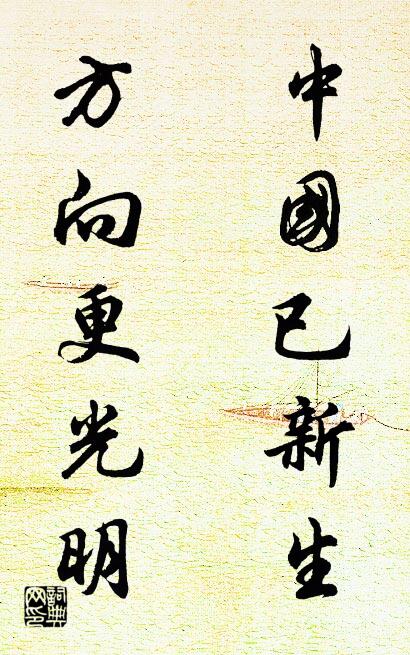 中國已新生
方向更光明
詞典網印